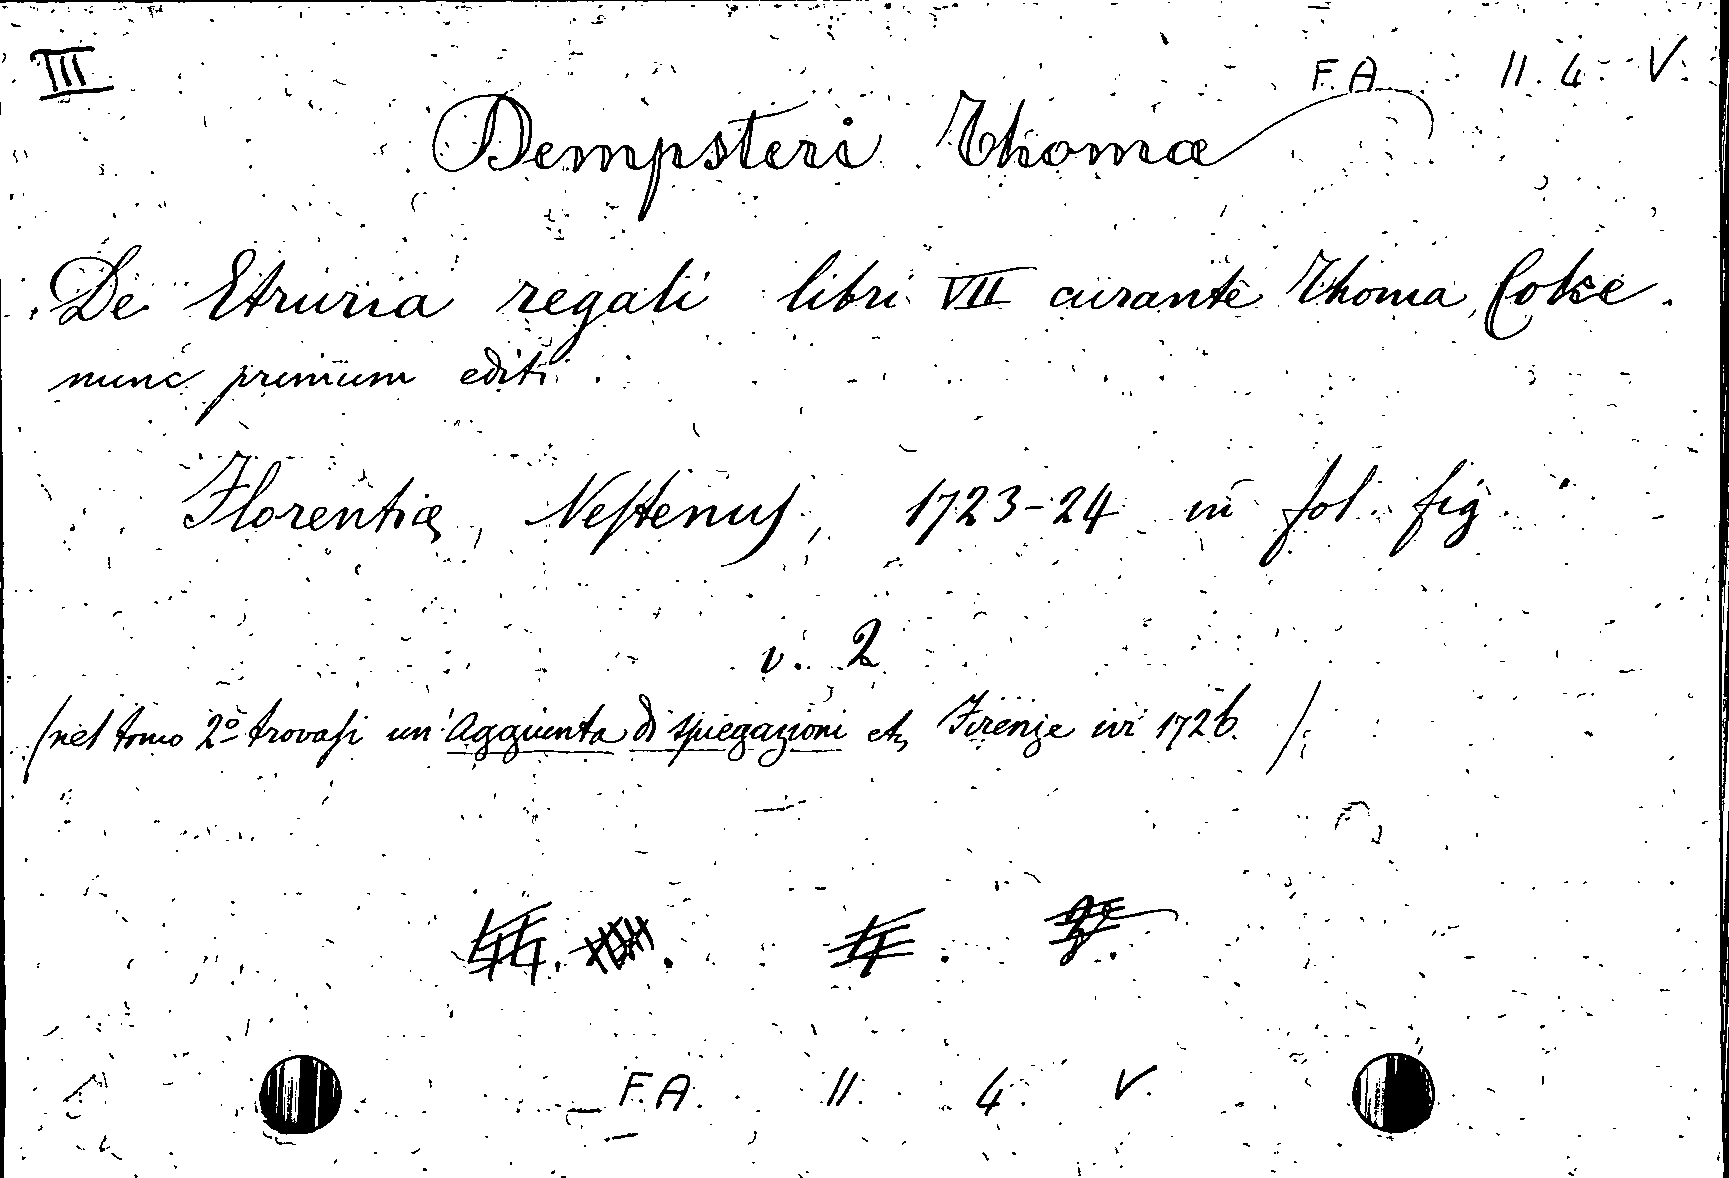 III
F. A. II. 4. V.
Dempsteri Thomæ
De Etruria regali libri VII curante Thoma Coke.
nunc primum editi.
Florentiæ, Nestenus, 1723-24 in fol. fig.
v. 2
(nel tomo 2º trovasi un' Aggiunta di spiegazioni etc, Firenze ivi 1726.)
F. A. II. 4. V.